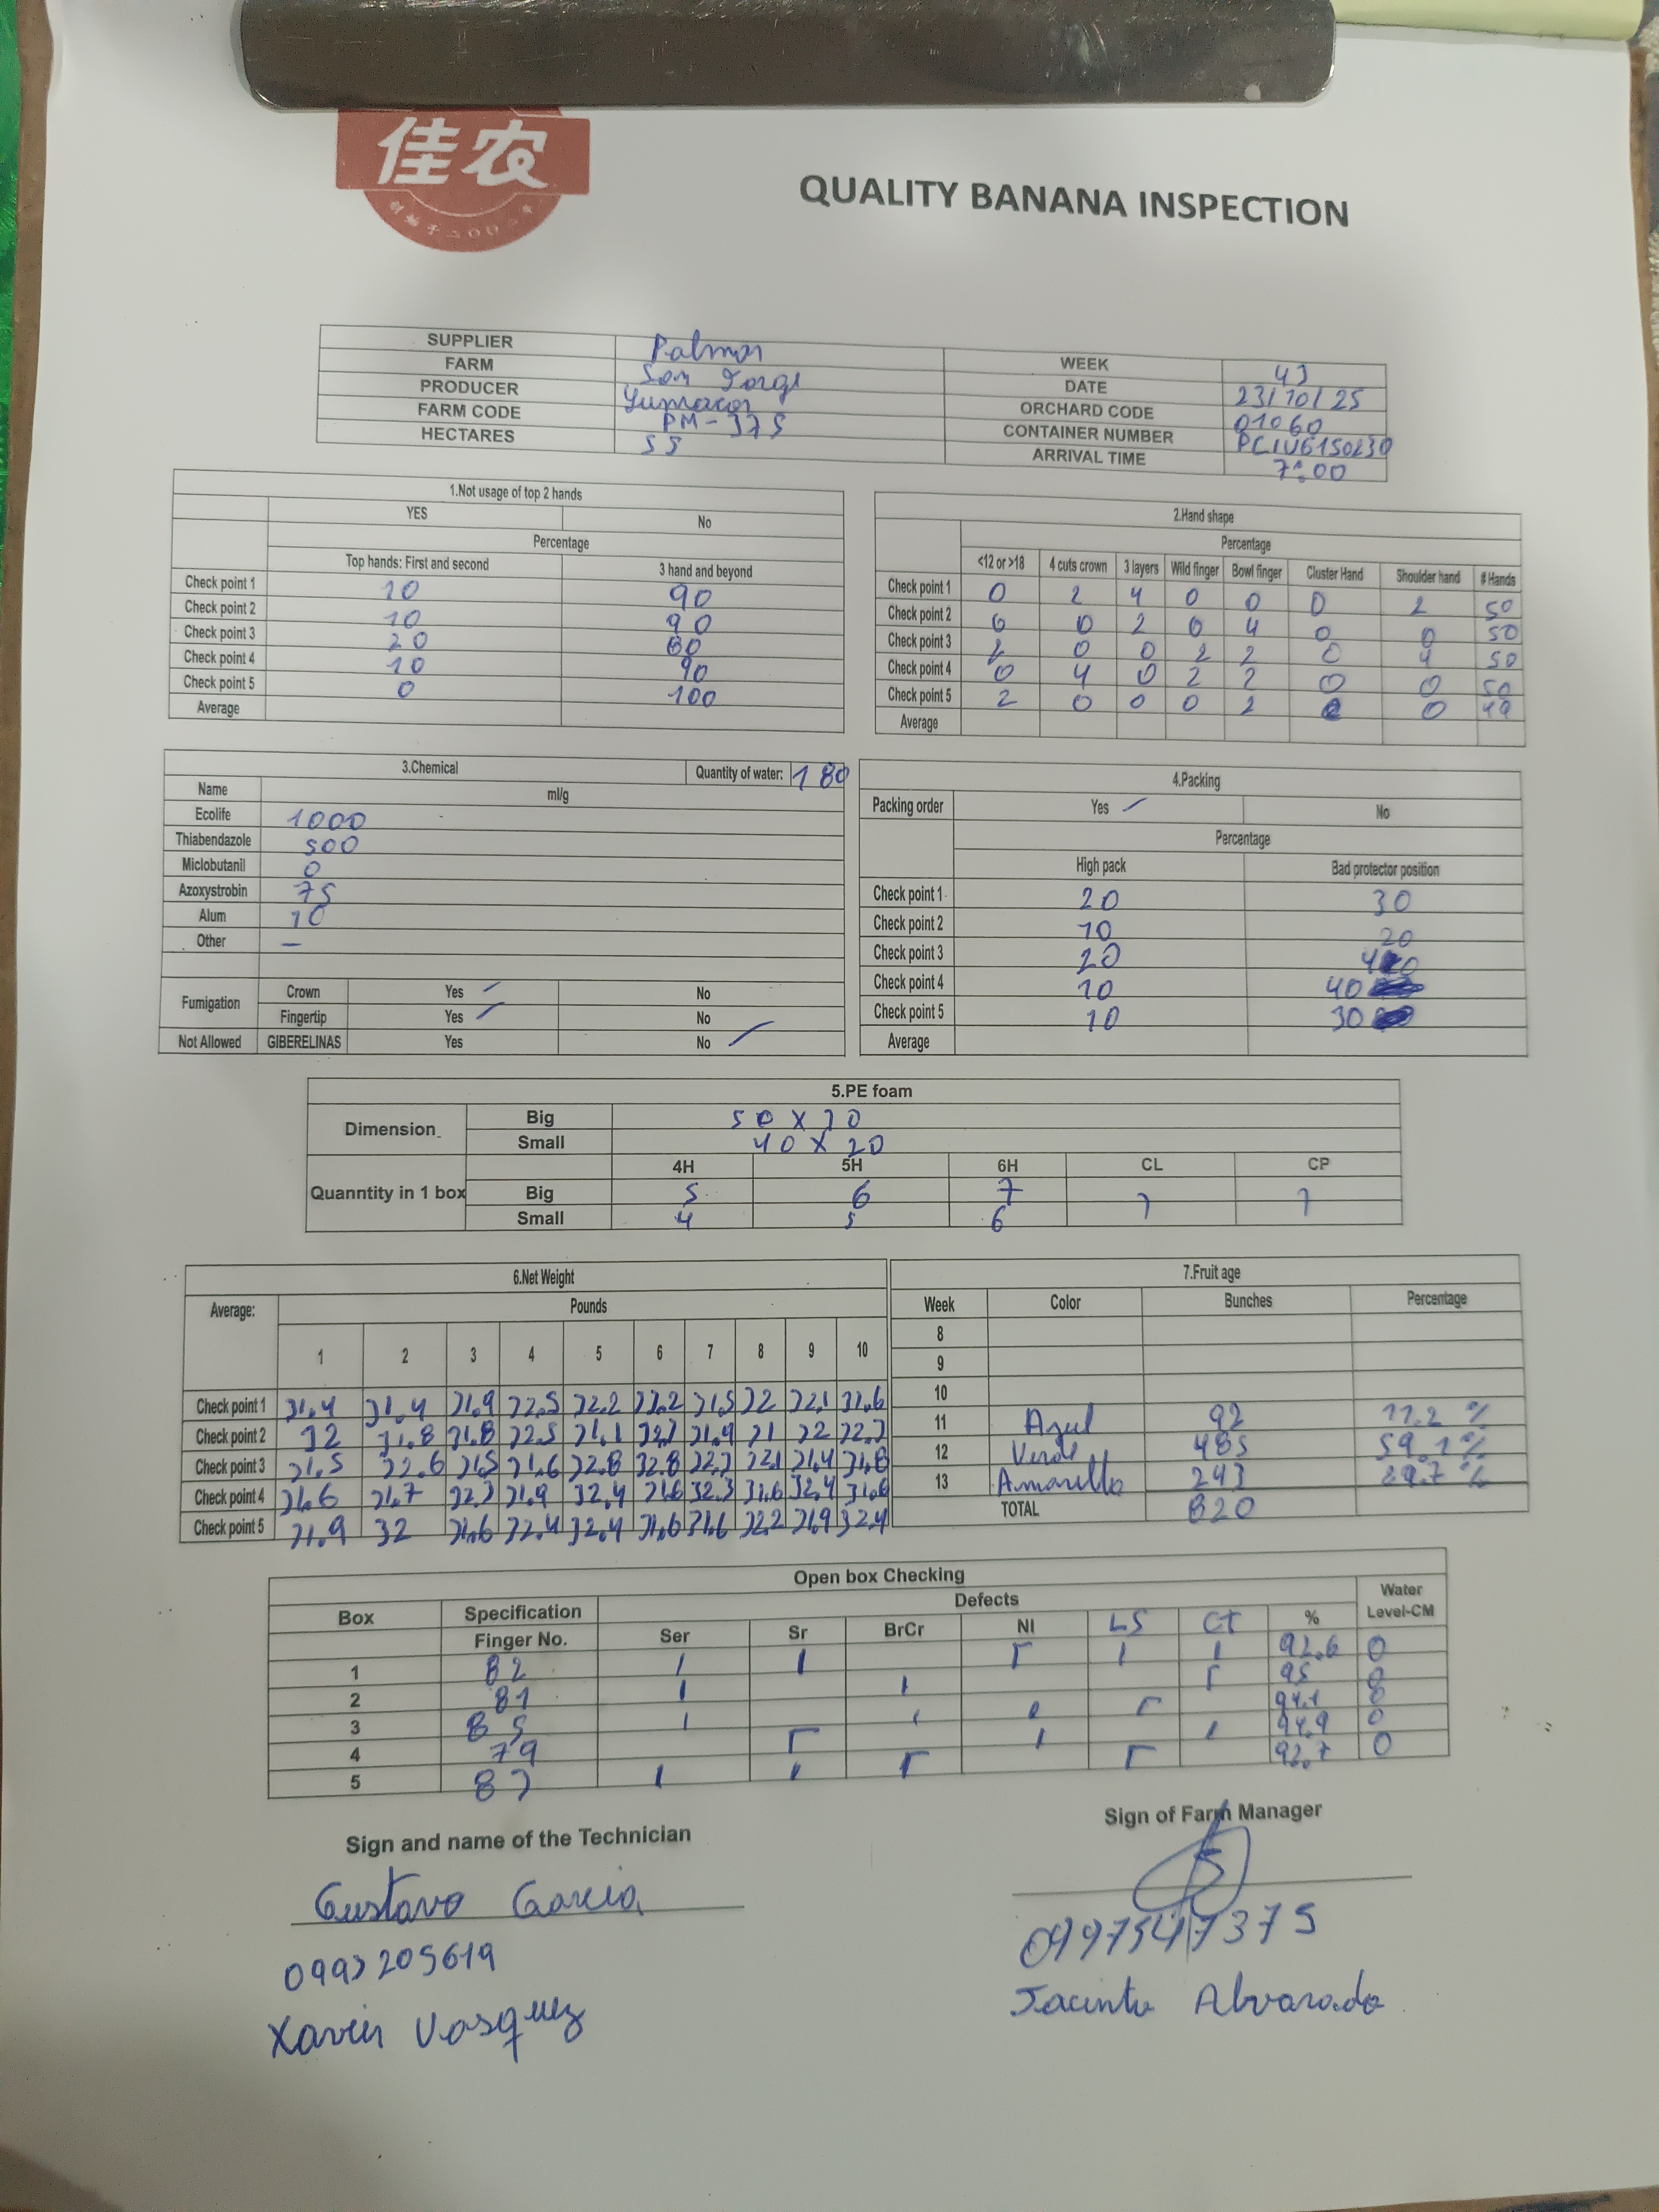 佳农
QUALITY BANANA INSPECTION
SUPPLIER Palmar WEEK 43
FARM San Jorge DATE 23/10/25
PRODUCER ORCHARD CODE 01060
FARM CODE PM-375 CONTAINER NUMBER PCIU6150230
HECTARES 55 ARRIVAL TIME 7:00
1.Not usage of top 2 hands
YES No
Percentage
Top hands: First and second 3 hand and beyond
Check point 1 10 90
Check point 2 10 90
Check point 3 20 80
Check point 4 10 90
Check point 5 0 100
Average
2.Hand shape
Percentage
<12 or >18 4 cuts crown 3 layers Wild finger Bowl finger Cluster Hand Shoulder hand # Hands
Check point 1 0 2 4 0 0 0 2 50
Check point 2 0 0 2 0 4 0 0 50
Check point 3 2 0 0 2 2 0 4 50
Check point 4 0 4 0 2 2 0 0 50
Check point 5 2 0 0 0 2 0 0 49
Average
3.Chemical Quantity of water: 180
Name ml/g
Ecolife 1000
Thiabendazole 500
Miclobutanil 0
Azoxystrobin 75
Alum 10
Other —
Fumigation Crown Yes No
Fingertip Yes No
Not Allowed GIBERELINAS Yes No
4.Packing
Packing order Yes No
Percentage
High pack Bad protector position
Check point 1 20 30
Check point 2 10 20
Check point 3 20
Check point 4 10 40
Check point 5 10 30
Average
5.PE foam
Dimension Big 50 X 30
Small 40 X 20
4H 5H 6H CL CP
Quanntity in 1 box Big 5 6 7 7 7
Small 4 5 6
6.Net Weight
Average: Pounds
1 2 3 4 5 6 7 8 9 10
Check point 1 31.4 31.4 31.9 32.5 32.2 32.2 31.5 32 32.1 31.6
Check point 2 32 31.8 31.8 32.5 31.1 32.3 31.9 31 32 32.3
Check point 3 31.5 32.6 31.5 31.6 32.8 32.8 32.3 32.1 31.4 31.8
Check point 4 31.6 31.7 32.3 31.9 32.4 31.6 32.3 31.6 32.4 31.6
Check point 5 31.9 32 31.6 32.4 32.4 31.6 31.6 32.2 31.9 32.4
7.Fruit age
Week Color Bunches Percentage
8
9
10
11 Azul 92 11.2 %
12 Verde 485 59.1 %
13 Amarillo 243 29.7 %
TOTAL 820
Open box Checking
Box Specification Defects Water Level-CM
Finger No. Ser Sr BrCr NI LS CT %
1 82 92.6 0
2 81 95 0
3 85 94.1 0
4 79 94.9 0
5 83 92.7 0
Sign and name of the Technician
Sign of Farm Manager
Gustavo Garcia
0993205619
Xavier Vasquez
0997547375
Jacinto Alvarado